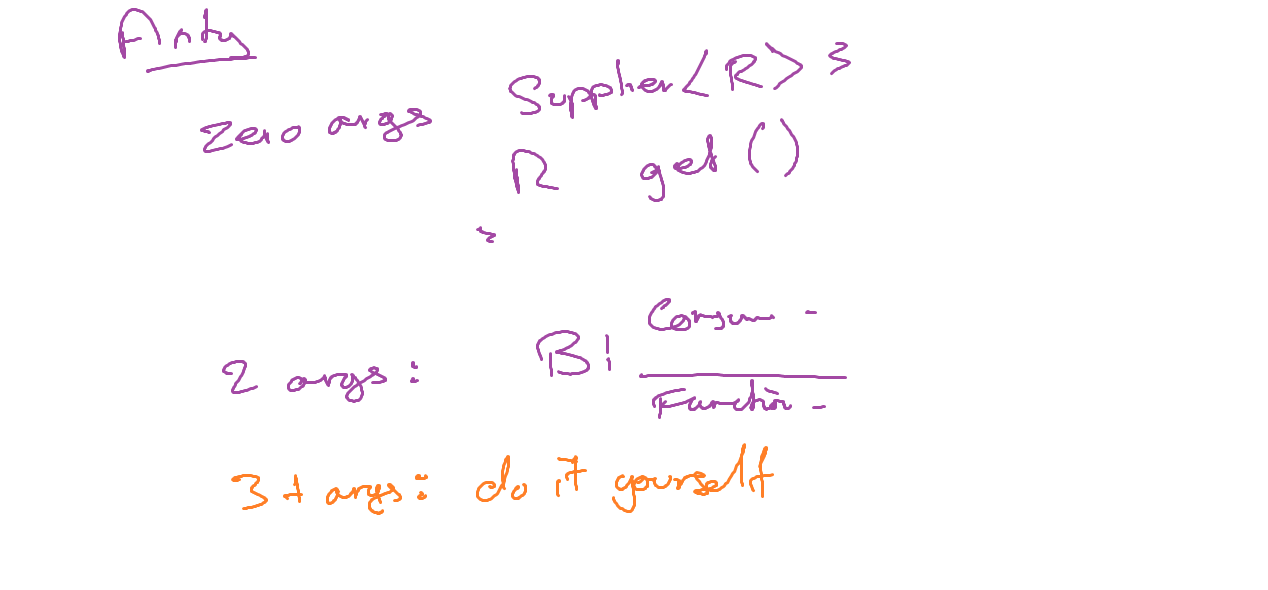 Arity
zero args Supplier<R> {
R get()
}
Consum -
2 args: Bi
Function -
3+ args: do it yourself